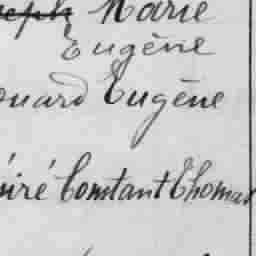 Marie
Eugène
ouard Eugène
iré Constant Thomas